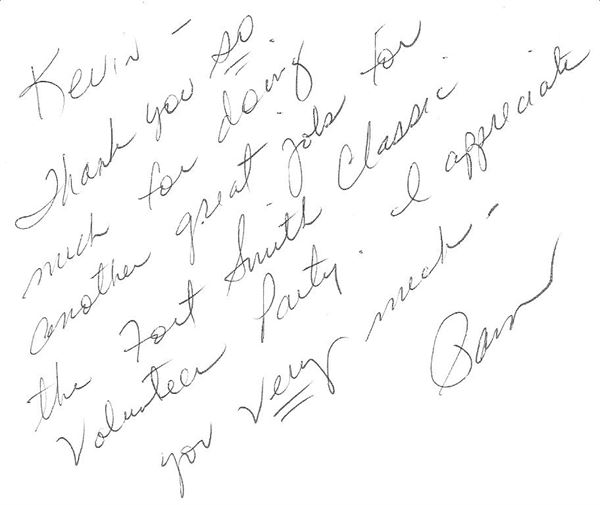 Kevin -
Thank you so
much for doing
another great job for
the Fort Smith Classic
Volunteer Party. I appreciate
you very much -
Pam